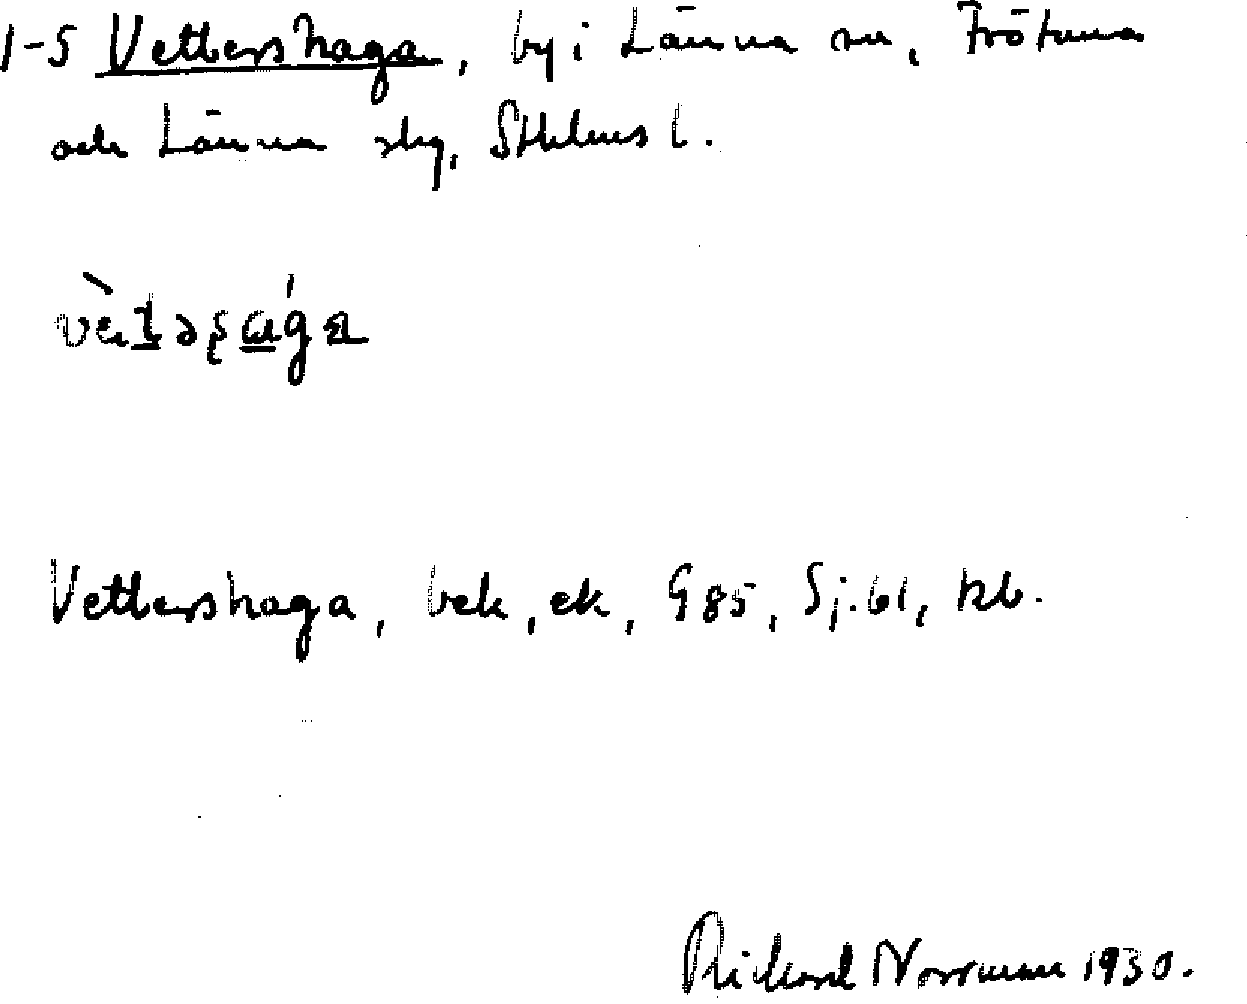 1-5 Vettershaga, by i Länna sn, Frötuna
och Länna skg, Sthlms l.
Vettershaga, bek, ek, G 85, Sj. 61, kb.
Rickard Norrman 1930.